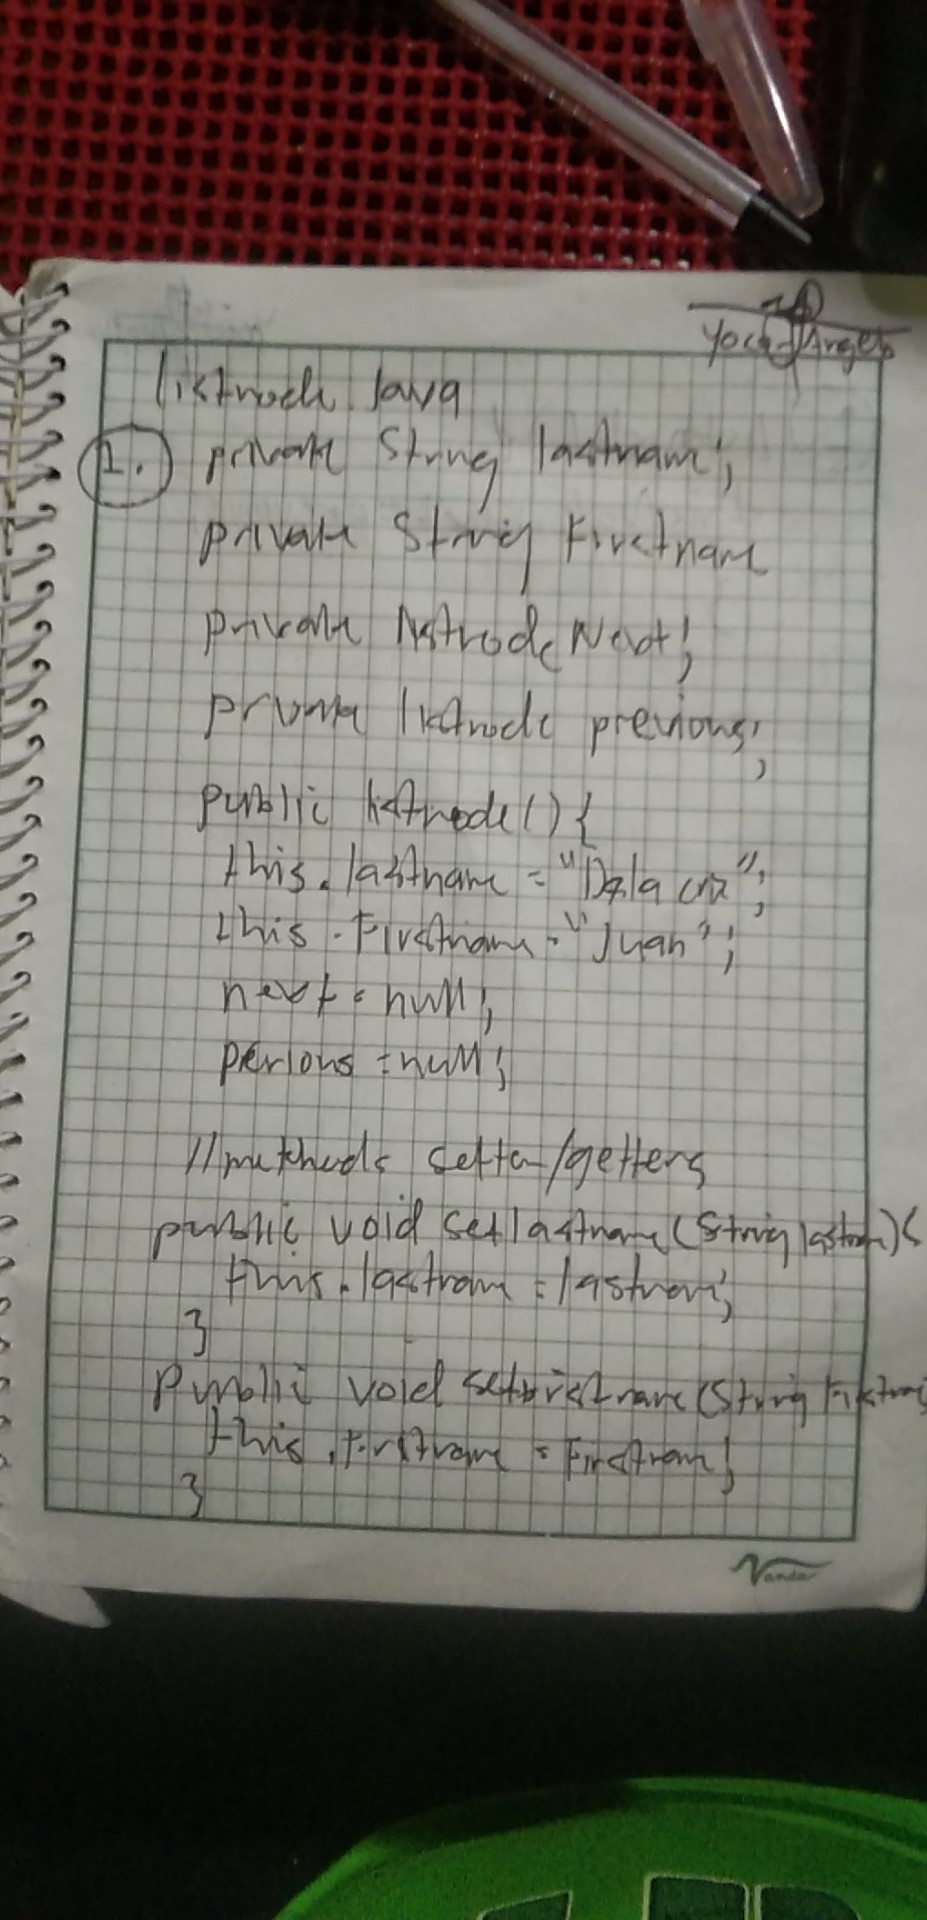 Yoca Angelo
listnode Java
1. private String lastnam;
private String Firstnam
private listnode Next;
private listnode previous;
public listnode() {
this.lastname = "Dela cruz";
this.Firstname = "Juan";
next = null;
perious = null;
//methods setter/getters
public void setlastname (String lastnam) {
this.lastnam = lastnam;
}
public void setfirstname (String Firstnam
this.firstname = Firstnam;
}
Vanda